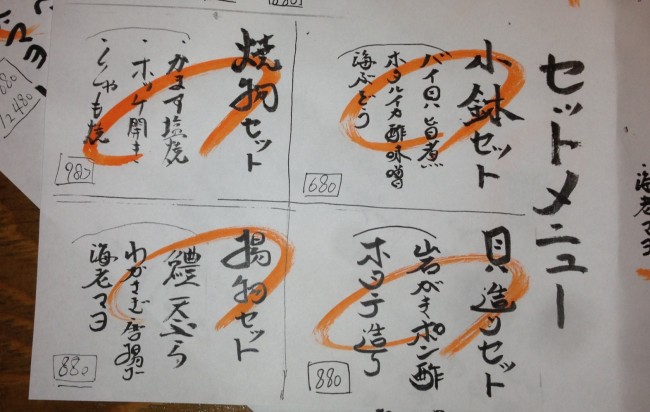 海老マヨ
セットメニュー
小鉢セット
バイ貝旨煮
ホタルイカ酢味噌
海ぶどう
680
焼物セット
・かます塩焼
・ホッケ開き
・ししゃも焼
980
貝造りセット
岩がきポン酢
ホタテ造り
880
揚物セット
鱧天ぷら
わかさぎ唐揚げ
海老マヨ
880
2480